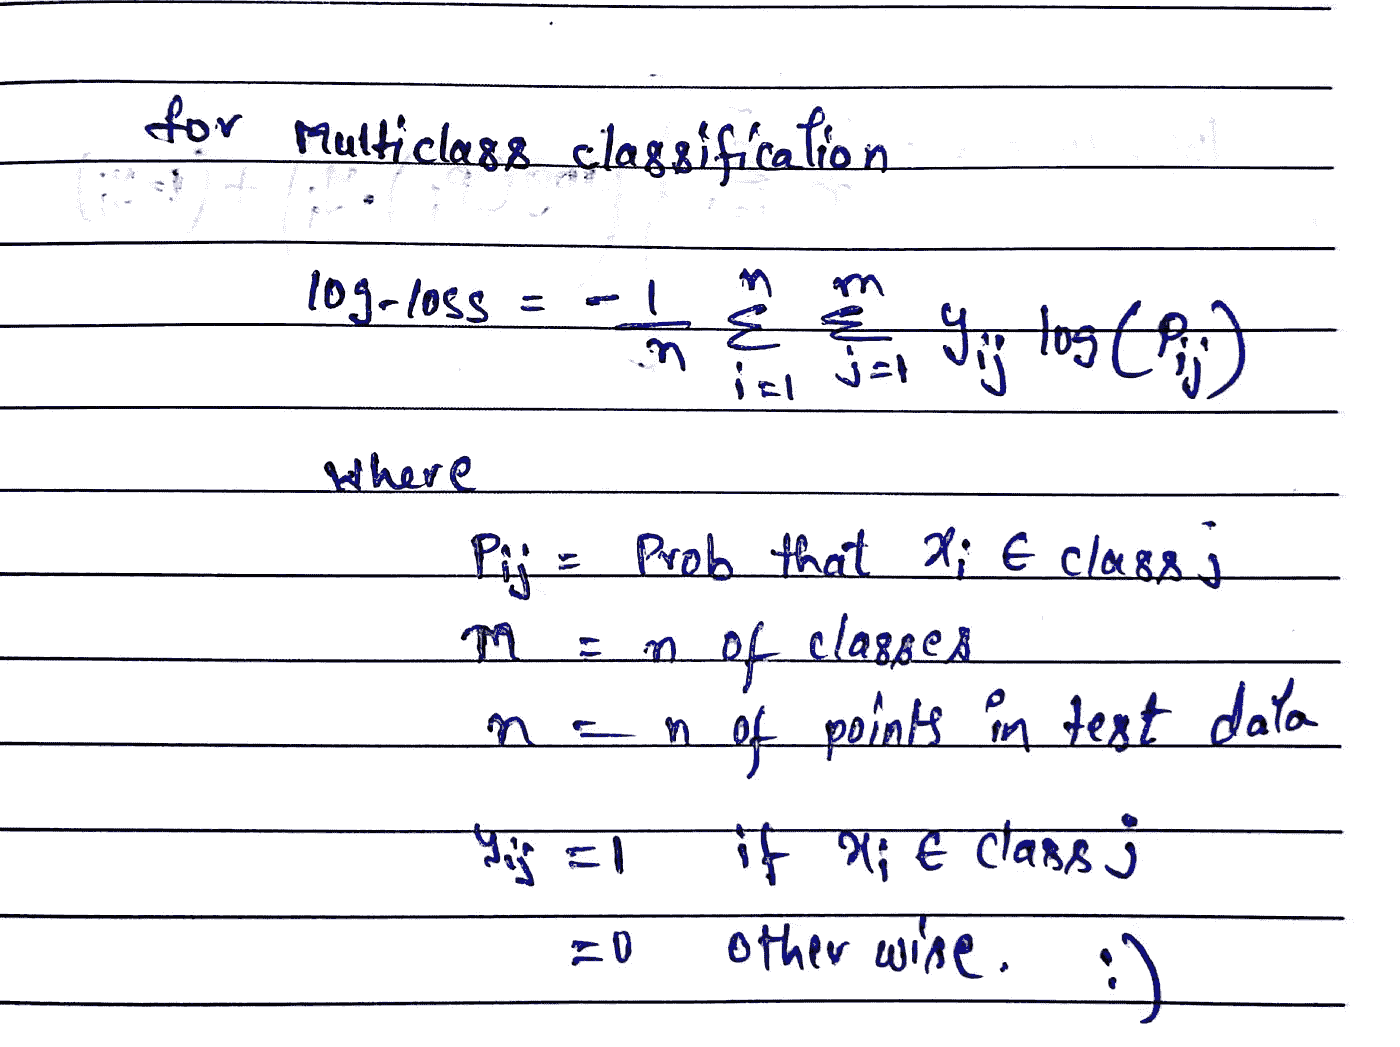 for Multiclass classification
log-loss = -1/n Σ_{i=1}^{n} Σ_{j=1}^{m} y_ij log(P_ij)
where
P_ij = Prob that x_i ∈ class j
m = n of classes
n = n of points in test data
y_ij = 1 if x_i ∈ class j
= 0 other wise. :)